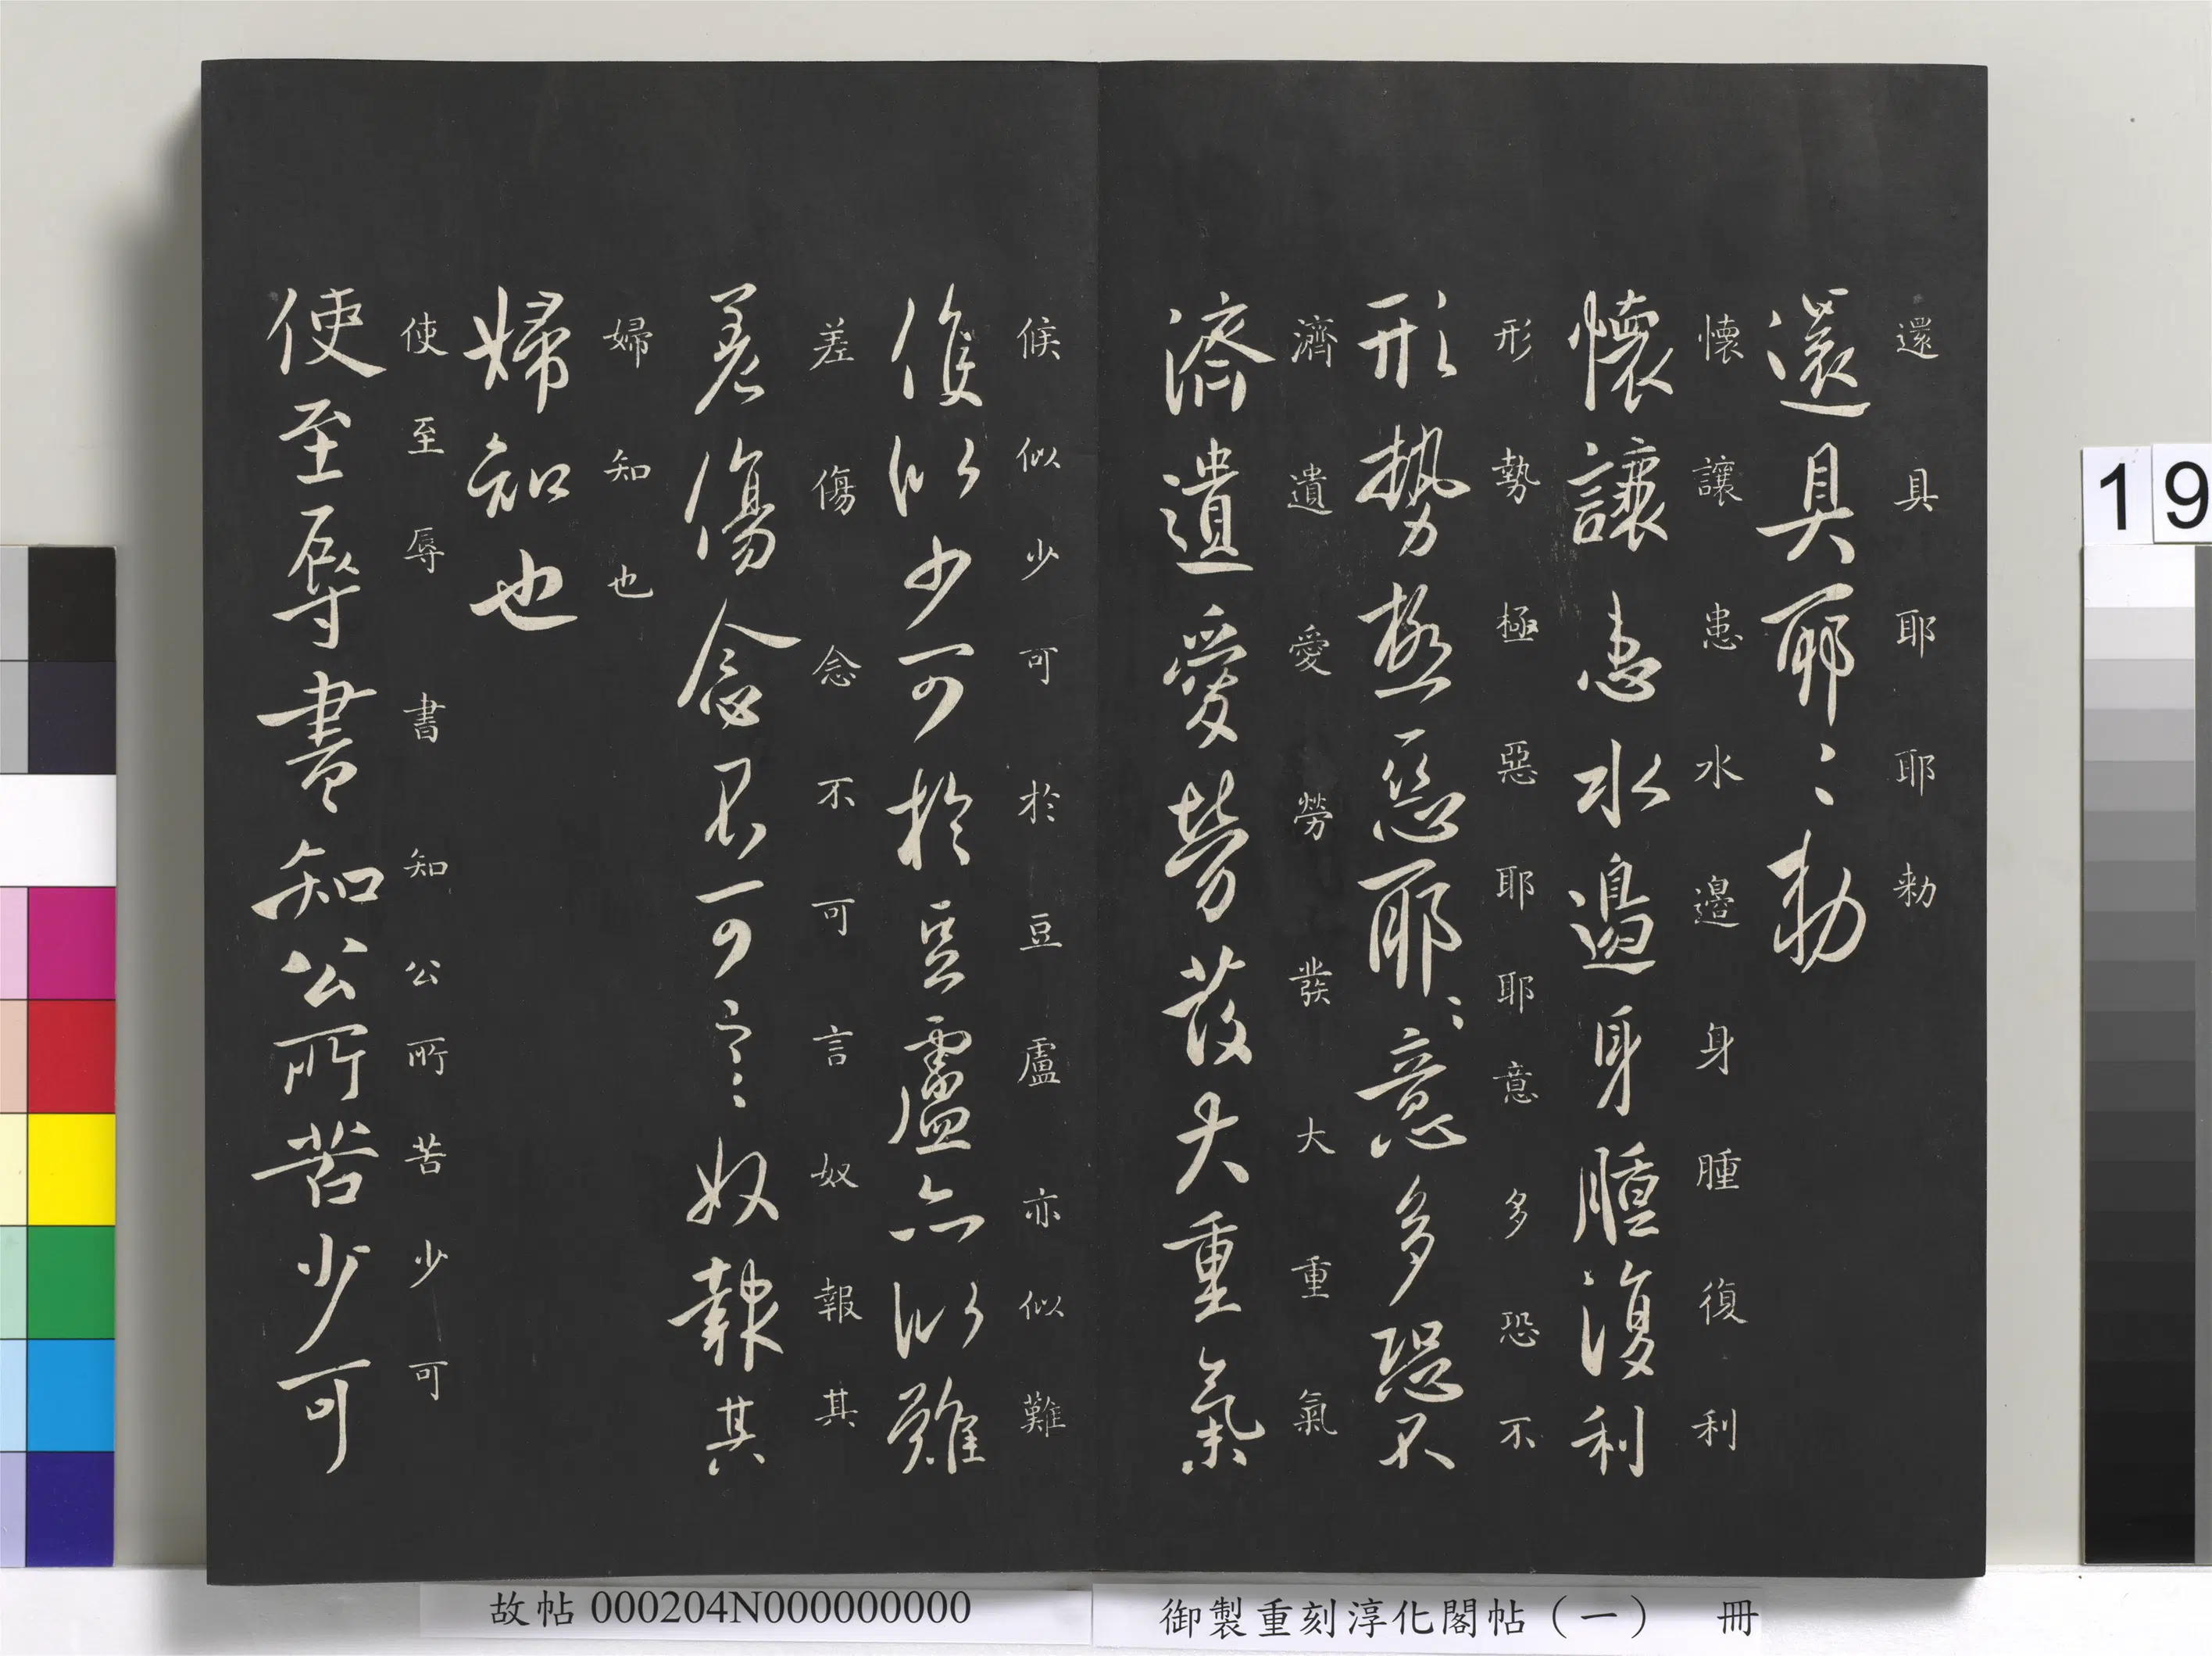 還具耶耶勅
還具耶〻勅
懷讓患水邉身腫復利
懷讓患水邉身腫復利
形勢極惡耶耶意多恐不
形勢極惡耶〻意多恐不
濟遺愛勞發大重氣
濟遺愛勞發大重氣
候似少可於豆盧亦似難
候似少可於豆盧亦似難
差傷念不可言奴報其
差傷念不可言〻奴報其
婦知也
婦知也
使至辱書知公所苦少可
使至辱書知公所苦少可
19
故帖 000204N000000000
御製重刻淳化閣帖（一） 冊